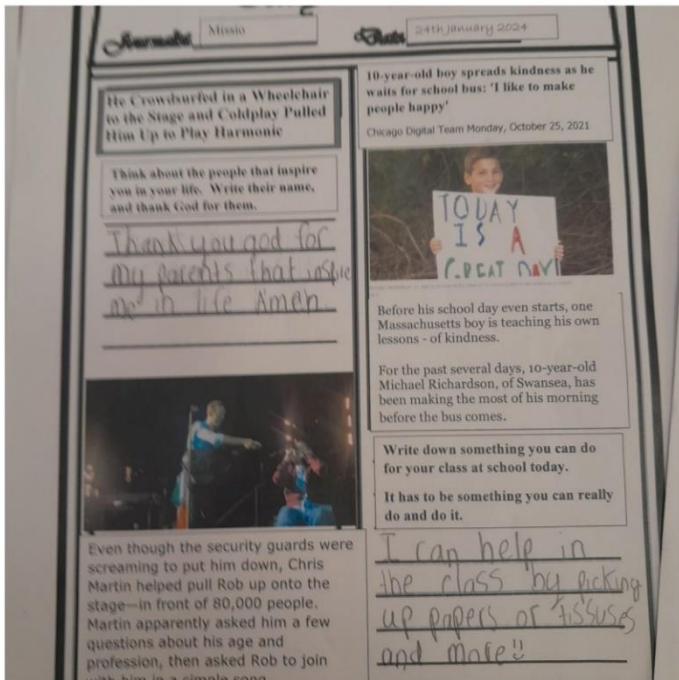 Journalist
Missio
Date
24th January 2024
He Crowdsurfed in a Wheelchair
to the Stage and Coldplay Pulled
Him Up to Play Harmonic
Think about the people that inspire
you in your life. Write their name,
and thank God for them.
Thank you god for
my parents that inspire
me in life Amen.
Even though the security guards were
screaming to put him down, Chris
Martin helped pull Rob up onto the
stage—in front of 80,000 people.
Martin apparently asked him a few
questions about his age and
profession, then asked Rob to join
with him in a simple song
10-year-old boy spreads kindness as he
waits for school bus: 'I like to make
people happy'
Chicago Digital Team Monday, October 25, 2021
TODAY
IS A
GREAT DAY!
Before his school day even starts, one
Massachusetts boy is teaching his own
lessons - of kindness.
For the past several days, 10-year-old
Michael Richardson, of Swansea, has
been making the most of his morning
before the bus comes.
Write down something you can do
for your class at school today.
It has to be something you can really
do and do it.
I can help in
the class by picking
up papers or tissuses
and more!!